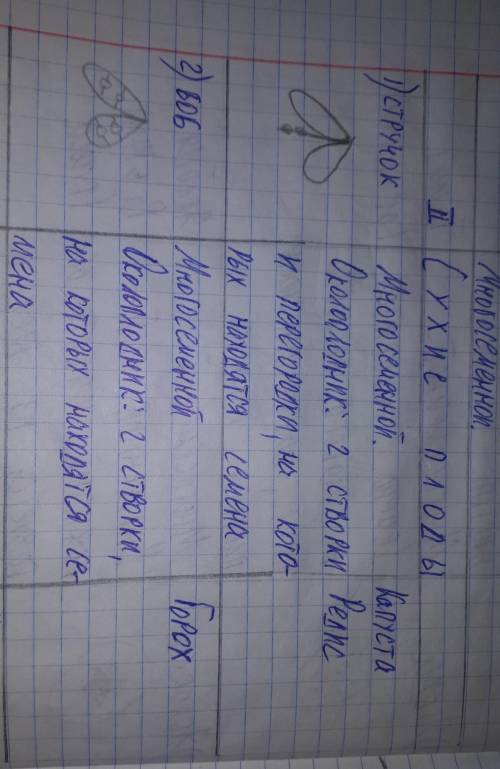 Многосеменной.
II Сухие плоды
1) стручок
Многосеменной.
Околоплодник: 2 створки
и перегородки, на кото-
рых находятся семена
Капуста
Редис
2) боб
Многосеменной
Околоплодник: 2 створки,
на которых находятся се-
мена
Горох